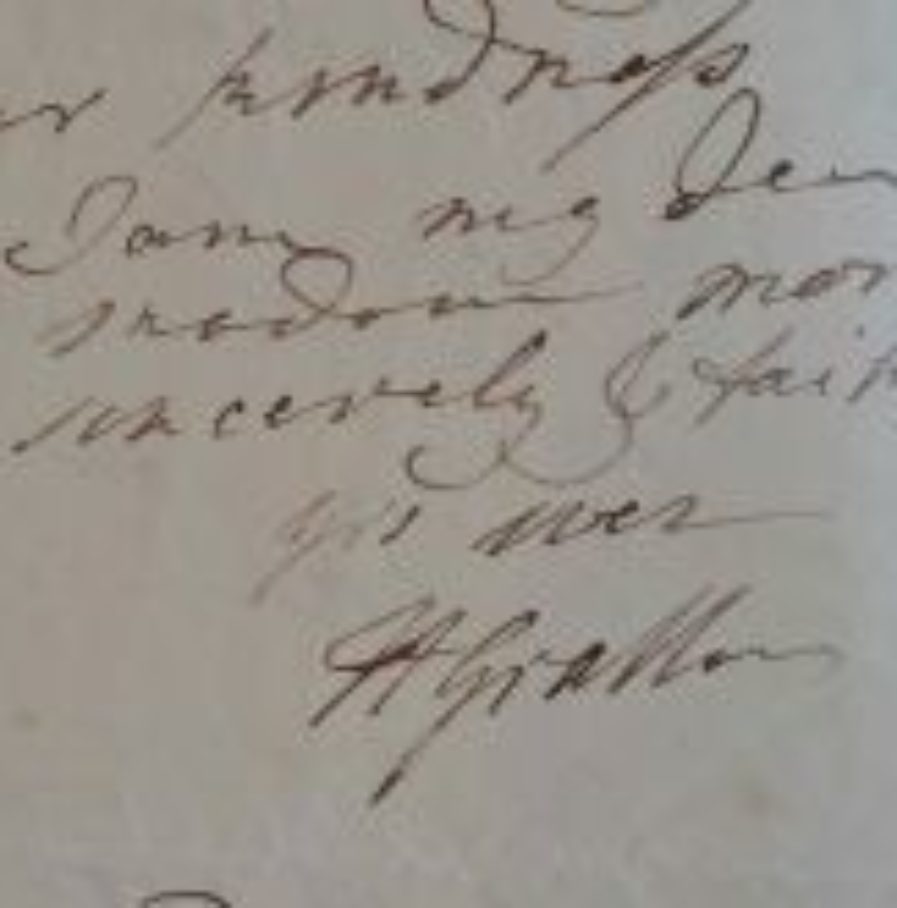 kindness
I am my dea
madam mor
sincerely & faith
yrs ever
H Grattan